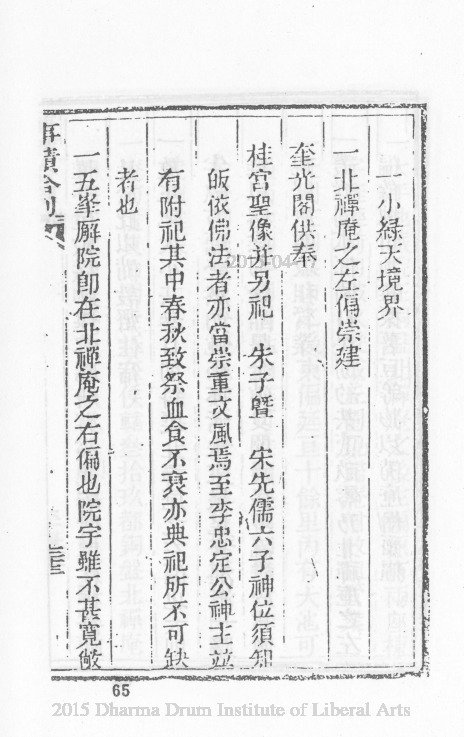 一小綠天境界
一北禪庵之左偏崇建
奎光閣供奉
桂宮聖像并另祀 朱子曁 宋先儒六子神位須知
皈依佛法者亦當崇重文風焉至李忠定公神主並
有附祀其中春秋致祭血食不衰亦典祀所不可缺
者也
一五峯廨院卽在北禪庵之右偏也院宇雖不甚寬敞
65
2015 Dharma Drum Institute of Liberal Arts